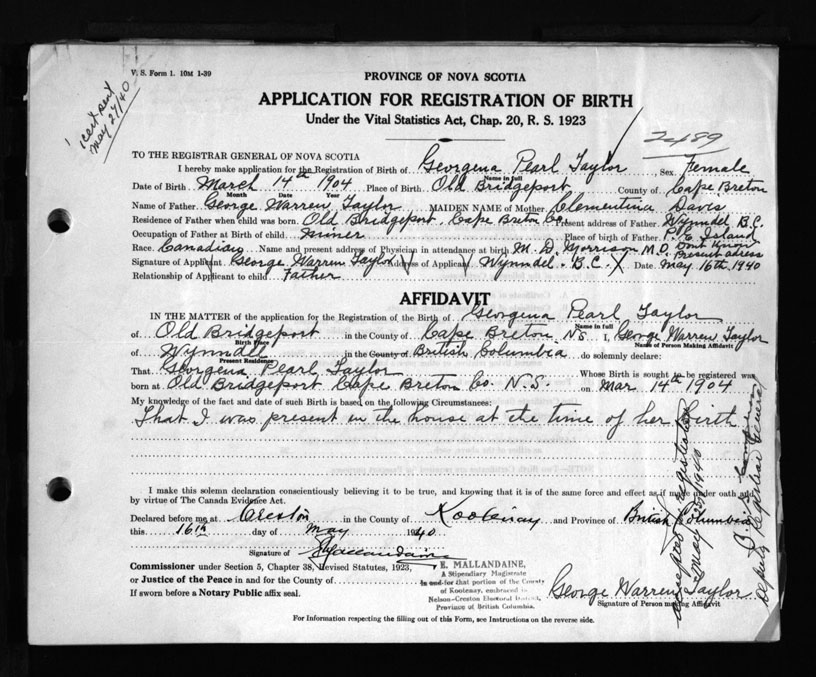 V. S. Form 1. 10M 1-39
1 cert sent
May 27/40
PROVINCE OF NOVA SCOTIA
APPLICATION FOR REGISTRATION OF BIRTH
Under the Vital Statistics Act, Chap. 20, R. S. 1923
2489
TO THE REGISTRAR GENERAL OF NOVA SCOTIA
I hereby make application for the Registration of Birth of Georgena Pearl Taylor, Sex Female
Name in full
Date of Birth March 14th 1904 Place of Birth Old Bridgeport County of Cape Breton
Month Date Year
Name of Father George Warren Taylor MAIDEN NAME of Mother Clementina Davis
Residence of Father when child was born Old Bridgeport, Cape Breton Co Present address of Father Wynndel B.C.
Occupation of Father at Birth of child Miner Place of birth of Father P. E. Island
Race Canadian Name and present address of Physician in attendance at birth M. D. Morrison M.D. Dont Know Present adress
Signature of Applicant George Warren Taylor Address of Applicant Wynndel B.C. Date May 16th 1940
Relationship of Applicant to child Father
AFFIDAVIT
IN THE MATTER of the application for the Registration of the Birth of Georgena Pearl Taylor
Name in full
of Old Bridgeport in the County of Cape Breton N.S. I, George Warren Taylor
Birth Place Name of Person Making Affidavit
of Wynndel in the County of British Columbia do solemnly declare:
Present Residence
That Georgena Pearl Taylor Whose Birth is sought to be registered was
born at Old Bridgeport Cape Breton Co. N.S. on Mar 14th 1904
My knowledge of the fact and date of such Birth is based on the following Circumstances:
That I was present in the house at the time of her birth
I make this solemn declaration conscientiously believing it to be true, and knowing that it is of the same force and effect as if made under oath and
by virtue of The Canada Evidence Act.
Declared before me at Creston in the County of Kootenay and Province of British Columbia
this 16th day of May 1940
Signature of E Mallandaine
Commissioner under Section 5, Chapter 38, Revised Statutes, 1923,
or Justice of the Peace in and for the County of
If sworn before a Notary Public affix seal.
E. MALLANDAINE,
A Stipendiary Magistrate
in and for that portion of the County
of Kootenay, embraced in
Nelson-Creston Electoral District,
Province of British Columbia.
George Warren Taylor
Signature of Person making Affidavit
accepted for registration
May 22/1940
Deputy Registrar General
For Information respecting the filling out of this Form, see Instructions on the reverse side.